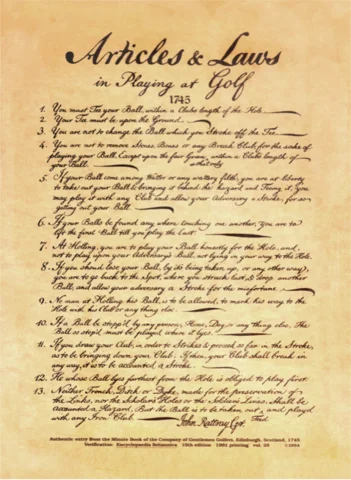 Articles & Laws
in Playing at Golf
1745
1. You must Tee your Ball, within a Clubs length of the Hole.
2. Your Tee must be upon the Ground.
3. You are not to change the Ball which you Stroke off the Tee.
4. You are not to remove Stones, Bones or any Break Club, for the sake of
playing your Ball, Except upon the fair Green, within a Clubs length of
your Ball. & that only
5. If your Ball come among Water or any watery filth, you are at liberty
to take out your Ball & bringing it behind the hazard and Teeing it, you
may play it with any Club and allow your Adversary a Stroke, for so
getting out your Ball.
6. If your Balls be found any where touching one another, You are to
lift the first Ball till you play the last.
7. At Holling, you are to play your Ball honestly for the Hole, and
not to play upon your Adversary's Ball, not lying in your way to the Hole.
8. If you should lose your Ball, by its being taken up, or any other way,
you are to go back to the Spot, where you struck last, & drop another
Ball, and allow your adversary a Stroke for the misfortune.
9. No man at Holling his Ball, is to be allowed, to mark his way to the
Hole with his Club or any thing else.
10. If a Ball be stopp'd by any person, Horse, Dog or any thing else, The
Ball so stop'd must be played where it lyes.
11. If you draw your Club, in order to Strike & proceed so far in the Stroke,
as to be bringing down your Club; If then, your Club shall break in
any way, it is to be accounted a Stroke.
12. He whose Ball lyes farthest from the Hole is obliged to play first.
13. Neither Trench, Ditch or Dyke, made for the preservation of
the Links, nor the Scholar's Holes or the Soldiers Lines, Shall be
Accounted a Hazard, But the Ball is to be taken out, and play'd
with any Iron Club. Teed
John Rattray Cpt.
Authentic entry from the Minute Book of the Company of Gentlemen Golfers, Edinburgh, Scotland, 1745
Verification: Encyclopaedia Britannica 15th edition 1991 printing vol. 25 ©1994